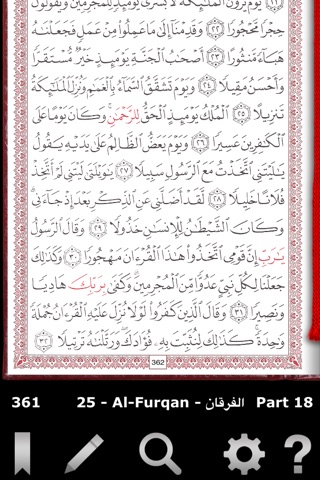 ﴿٢١﴾ يَوْمَ يَرَوْنَ ٱلْمَلَٰٓئِكَةَ لَا بُشْرَىٰ يَوْمَئِذٍ لِّلْمُجْرِمِينَ وَيَقُولُونَ
حِجْرًا مَّحْجُورًا ﴿٢٢﴾ وَقَدِمْنَآ إِلَىٰ مَا عَمِلُوا۟ مِنْ عَمَلٍ فَجَعَلْنَٰهُ
هَبَآءً مَّنثُورًا ﴿٢٣﴾ أَصْحَٰبُ ٱلْجَنَّةِ يَوْمَئِذٍ خَيْرٌ مُّسْتَقَرًّا
وَأَحْسَنُ مَقِيلًا ﴿٢٤﴾ وَيَوْمَ تَشَقَّقُ ٱلسَّمَآءُ بِٱلْغَمَٰمِ وَنُزِّلَ ٱلْمَلَٰٓئِكَةُ
تَنزِيلًا ﴿٢٥﴾ ٱلْمُلْكُ يَوْمَئِذٍ ٱلْحَقُّ لِلرَّحْمَٰنِ ۚ وَكَانَ يَوْمًا عَلَى
ٱلْكَٰفِرِينَ عَسِيرًا ﴿٢٦﴾ وَيَوْمَ يَعَضُّ ٱلظَّالِمُ عَلَىٰ يَدَيْهِ يَقُولُ
يَٰلَيْتَنِى ٱتَّخَذْتُ مَعَ ٱلرَّسُولِ سَبِيلًا ﴿٢٧﴾ يَٰوَيْلَتَىٰ لَيْتَنِى لَمْ أَتَّخِذْ
فُلَانًا خَلِيلًا ﴿٢٨﴾ لَّقَدْ أَضَلَّنِى عَنِ ٱلذِّكْرِ بَعْدَ إِذْ جَآءَنِى ۗ
وَكَانَ ٱلشَّيْطَٰنُ لِلْإِنسَٰنِ خَذُولًا ﴿٢٩﴾ وَقَالَ ٱلرَّسُولُ
يَٰرَبِّ إِنَّ قَوْمِى ٱتَّخَذُوا۟ هَٰذَا ٱلْقُرْءَانَ مَهْجُورًا ﴿٣٠﴾ وَكَذَٰلِكَ
جَعَلْنَا لِكُلِّ نَبِىٍّ عَدُوًّا مِّنَ ٱلْمُجْرِمِينَ ۗ وَكَفَىٰ بِرَبِّكَ هَادِيًا
وَنَصِيرًا ﴿٣١﴾ وَقَالَ ٱلَّذِينَ كَفَرُوا۟ لَوْلَا نُزِّلَ عَلَيْهِ ٱلْقُرْءَانُ جُمْلَةً
وَٰحِدَةً ۚ كَذَٰلِكَ لِنُثَبِّتَ بِهِۦ فُؤَادَكَ ۖ وَرَتَّلْنَٰهُ تَرْتِيلًا ﴿٣٢﴾
362
361 25 - Al-Furqan - الفرقان Part 18
?